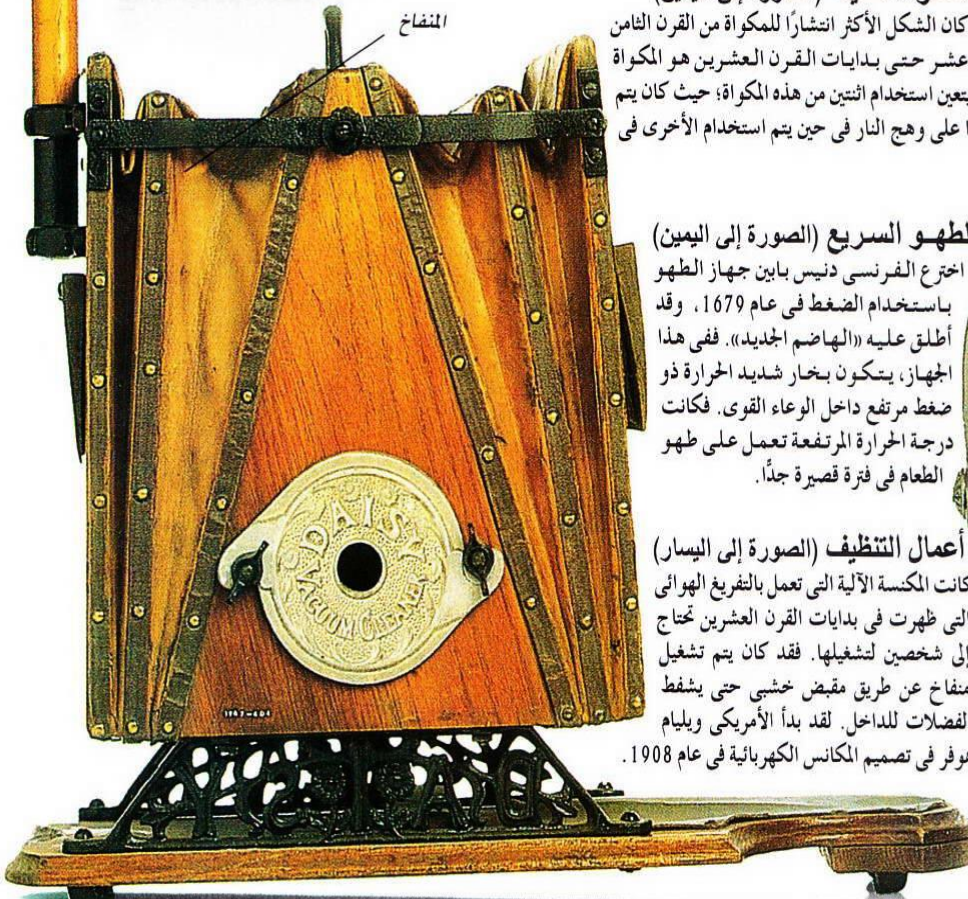 المنفاخ
كان الشكل الأكثر انتشارًا للمكواة من القرن الثامن
عشر حتى بدايات القرن العشرين هو المكواة
يتعين استخدام اثنتين من هذه المكواة؛ حيث كان يتم
على وهج النار فى حين يتم استخدام الأخرى فى
لطهو السريع (الصورة إلى اليمين)
اخترع الفرنسى دنيس بابين جهاز الطهو
باستخدام الضغط فى عام 1679، وقد
أطلق عليه «الهاضم الجديد». ففى هذا
الجهاز، يتكون بخار شديد الحرارة ذو
ضغط مرتفع داخل الوعاء القوى. فكانت
درجة الحرارة المرتفعة تعمل على طهو
الطعام فى فترة قصيرة جدًّا.
أعمال التنظيف (الصورة إلى اليسار)
كانت المكنسة الآلية التى تعمل بالتفريغ الهوائى
التى ظهرت فى بدايات القرن العشرين تحتاج
إلى شخصين لتشغيلها. فقد كان يتم تشغيل
منفاخ عن طريق مقبض خشبى حتى يشفط
لفضلات للداخل. لقد بدأ الأمريكى ويليام
هوفر فى تصميم المكانس الكهربائية فى عام 1908.
DAISY
VACUUM CLEANER
DAISY